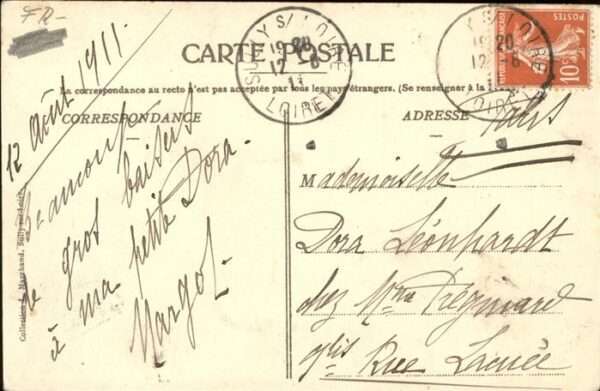 FR-
CARTE POSTALE
La correspondance au recto n'est pas acceptée par tous les pays étrangers. (Se renseigner à la
CORRESPONDANCE
ADRESSE
SULLY S/ LOIRE
19 20
12 - 8
11
LOIRET
POSTES
10
12 Août 1911.
Beaucoup
de gros baisers
à ma petite Dora.
Margot.
Paris
Mademoiselle
Dora Léonhardt
chez Mme
Rue Lacuée
Collection Marchand, Sully-sur-Loire